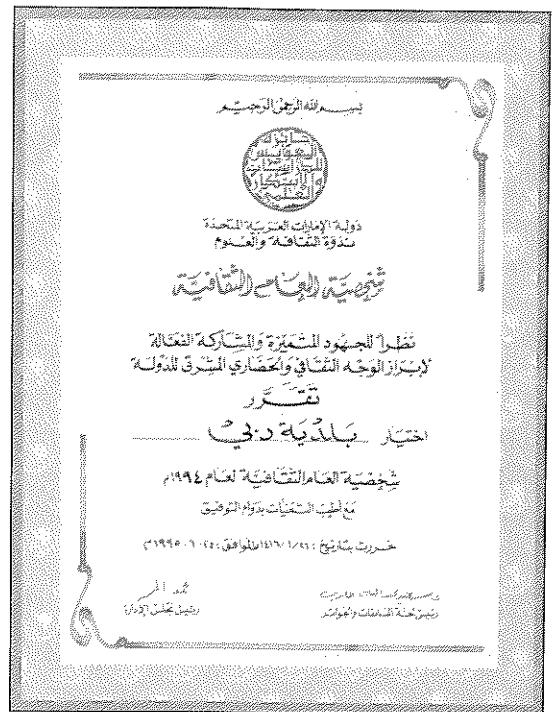 بسم الله الرحمن الرحيم
جائزة
العويس
للدراسات
والابتكار
العلمي
دولة الإمارات العربية المتحدة
ندوة الثقافة والعلوم
شخصية العام الثقافية
نظراً للجهود المتميزة والمشاركة الفعالة
لإبراز الوجه الثقافي والحضاري المشرق للدولة
تقرر
اختيار بلدية دبي
شخصية العام الثقافية لعام ١٩٩٤م
مع أطيب التمنيات بدوام التوفيق
حررت بتاريخ : ١٤١٦/١/٢٦ الموافق : ١٩٩٥٠٦٠٢٥م
رئيس مجلس الإدارة
رئيس لجنة المسابقات والجوائز